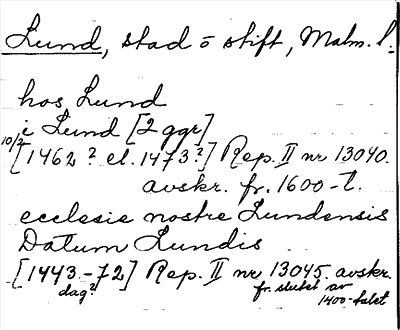 Lund, stad o stift, Malm. l.
hos Lund
i Lund [2 ggr]
10/2 [1462? el. 1473?] Rep. II nr 13040.
avskr. fr. 1600-t.
ecclesie nostre Lundensis
Datum Lundis
[1443-72] Rep. II nr 13045. avskr.
dag? fr. slutet av
1400-talet